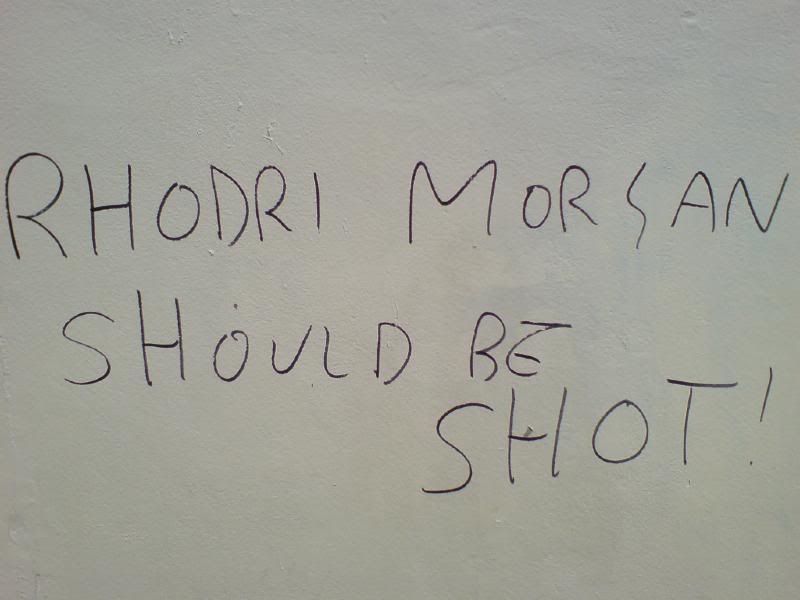 RHODRI MORGAN
SHOULD BE
SHOT!